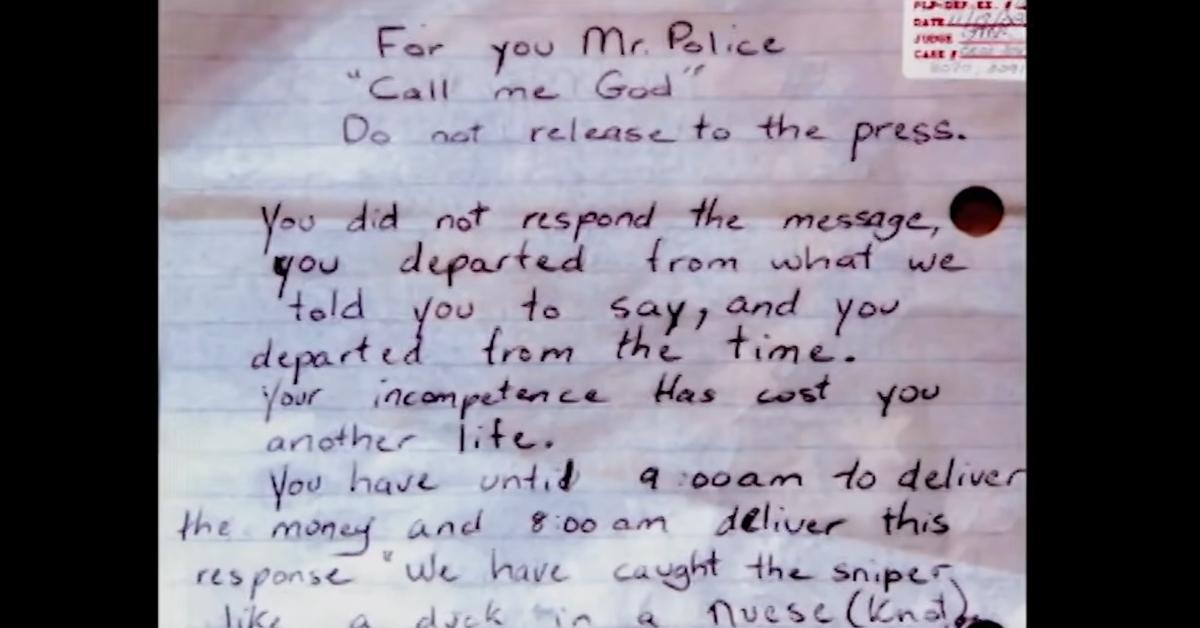 For you Mr. Police
"Call me God"
Do not release to the press.
You did not respond the message,
you departed from what we
told you to say, and you
departed from the time.
Your incompetence Has cost you
another life.
You have until 9:00am to deliver
the money and 8:00 am deliver this
response "We have caught the sniper
like a duck in a Nuese (knot)
DATE
JUDGE
CASE #